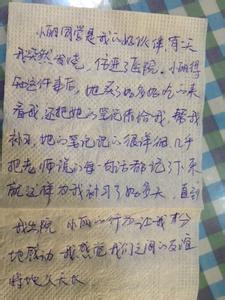 小丽同学是我的好伙伴，有天
我突然发烧，住进了医院。小丽得
知这件事后，她买了好多好吃的来
看我还把她的笔记带给我，帮我
补习，她的笔记记的很详细，几乎
把老师说的每一句话都记了下来
就这样为我补习了好多天，直到
我出院 小丽的行为让我十分
地感动 我想愿我们之间的友谊
地久天长